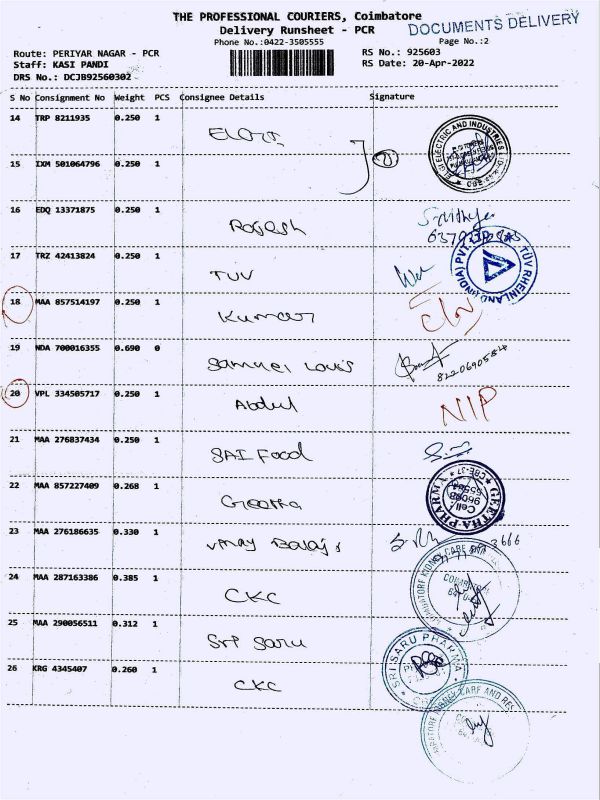 THE PROFESSIONAL COURIERS, Coimbatore
Delivery Runsheet - PCR
DOCUMENTS DELIVERY
Phone No.:0422-3505555
Page No.:2
Route: PERIYAR NAGAR - PCR
RS No.: 925603
Staff: KASI PANDI
RS Date: 20-Apr-2022
DRS No.: DCJ892560302
S No Consignment No Weight PCS Consignee Details Signature
14 TRP 8211935 0.250 1
ELGI ELECTRIC AND INDUSTRIES
15 IXM 501064796 0.250 1
16 EDQ 13371875 0.250 1
Rogesh
17 TRZ 42413824 0.250 1
TUV
TÜV RHEINLAND (INDIA) PVT.
18 MAA 857514197 0.250 1
Kumar
19 NDA 700016355 0.690 0
Samuel Louis
20 VPL 334505717 0.250 1
Abdul
NIP
21 MAA 276837434 0.250 1
SAI Food
22 MAA 857227409 0.268 1
Geetha
GEETHA PHARMA CBE-37
Cell:
23 MAA 276186635 0.330 1
vinay Balaji
24 MAA 287163386 0.385 1
CKC
COIMBATORE KIDNEY CARE AND
25 MAA 290056511 0.312 1
Sri Saru
SRI SARU PHARMA
26 KRG 4345407 0.260 1
CKC
COIMBATORE KIDNEY CARE AND RES